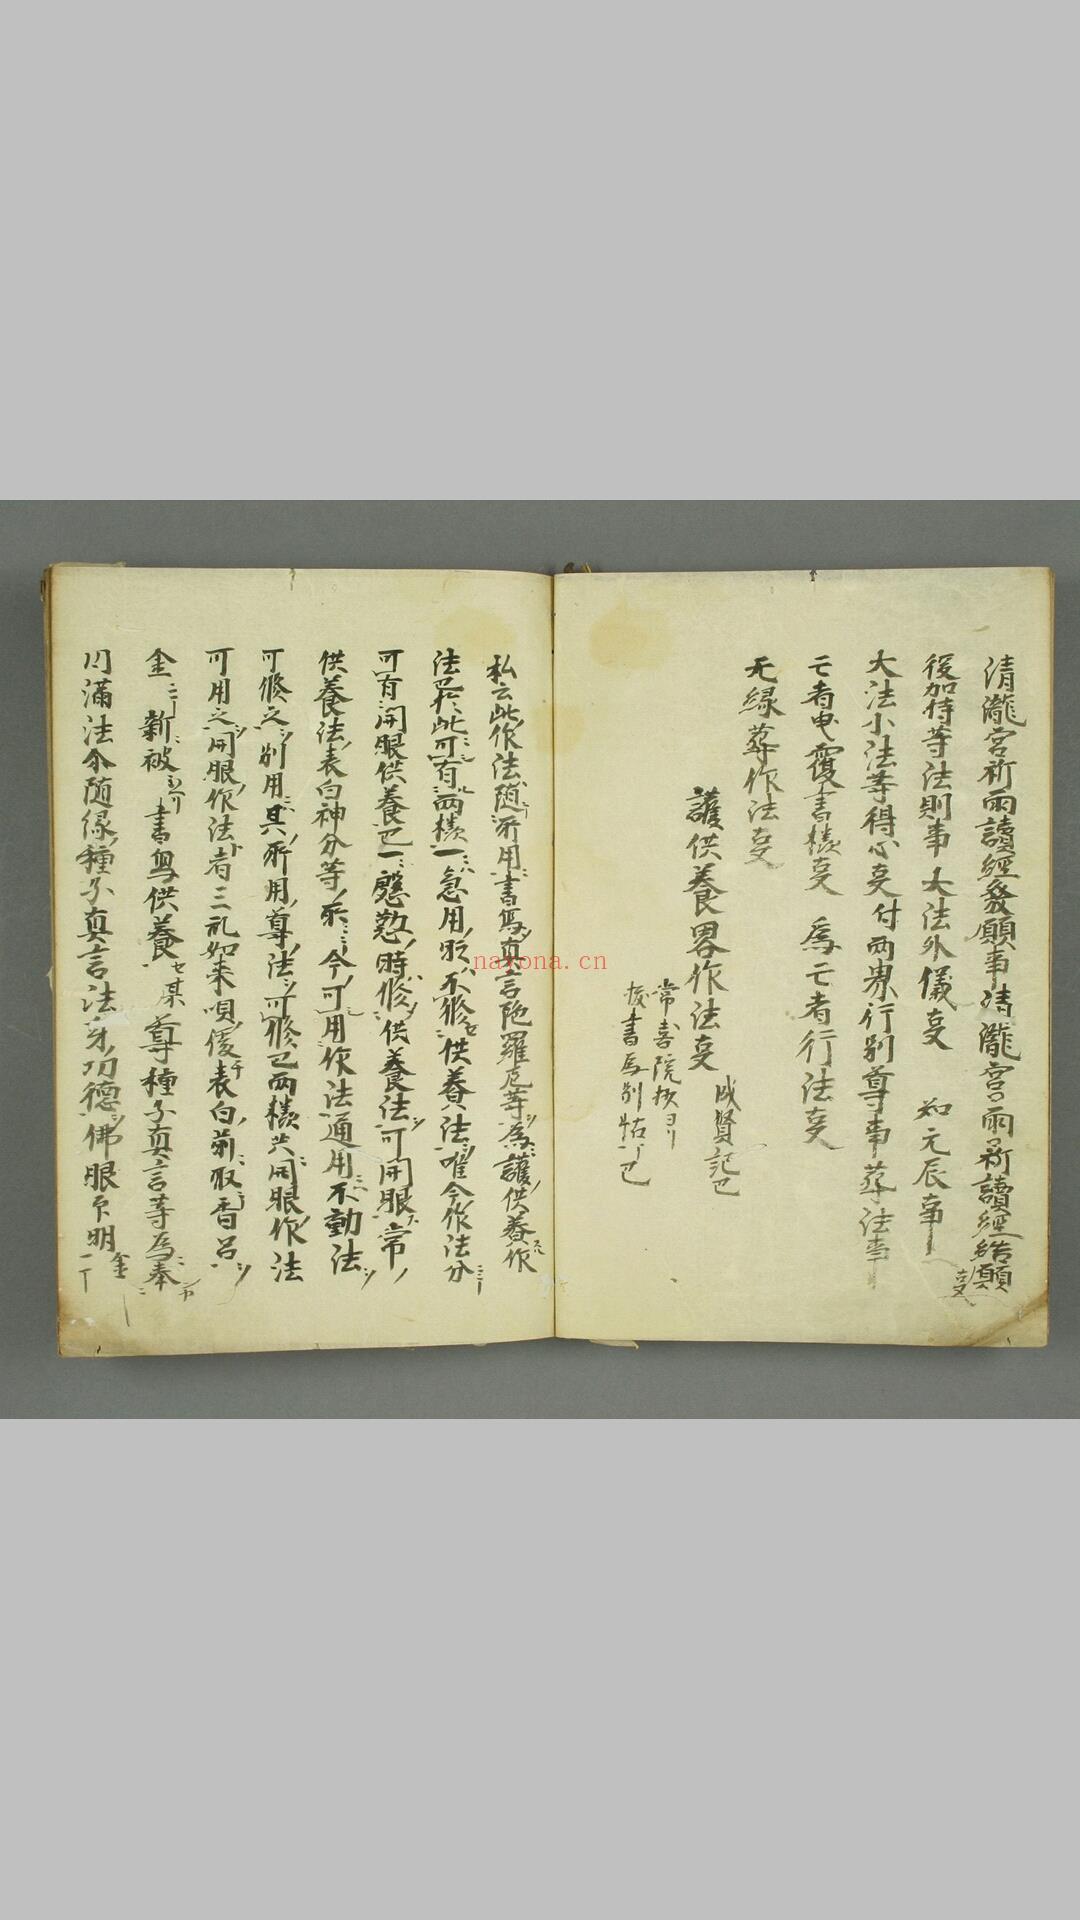 清瀧宮祈雨讀經發願事 清瀧宮雨祈讀經結願
事
後加持等法則事 大法外儀事 知元辰事
大法小法等得心事 付両界行別尊事 葬法事
亡者曳覆書様事 為亡者行法事
无縁葬作法事
護供養畧作法事 成賢記已
常喜院抄ヨリ
書写別帖了已
私云此作法随所用書写真言陀羅尼等為護供養作
法段此可有両様一急用時不修供養法唯今作法分
可有開眼供養已一慇懃時修供養法可開眼常
供養法表白神分等所今可用作法通用不動法
可修之別用其所用尊法可修已両様共開眼作法
可用之開眼作法者三礼如来唄後表白前取香呂
金二丁新被書写供養セ某尊種子真言等為奉
円滿法令随縁種子真言法身功德佛眼印明金一丁
naxona.cn